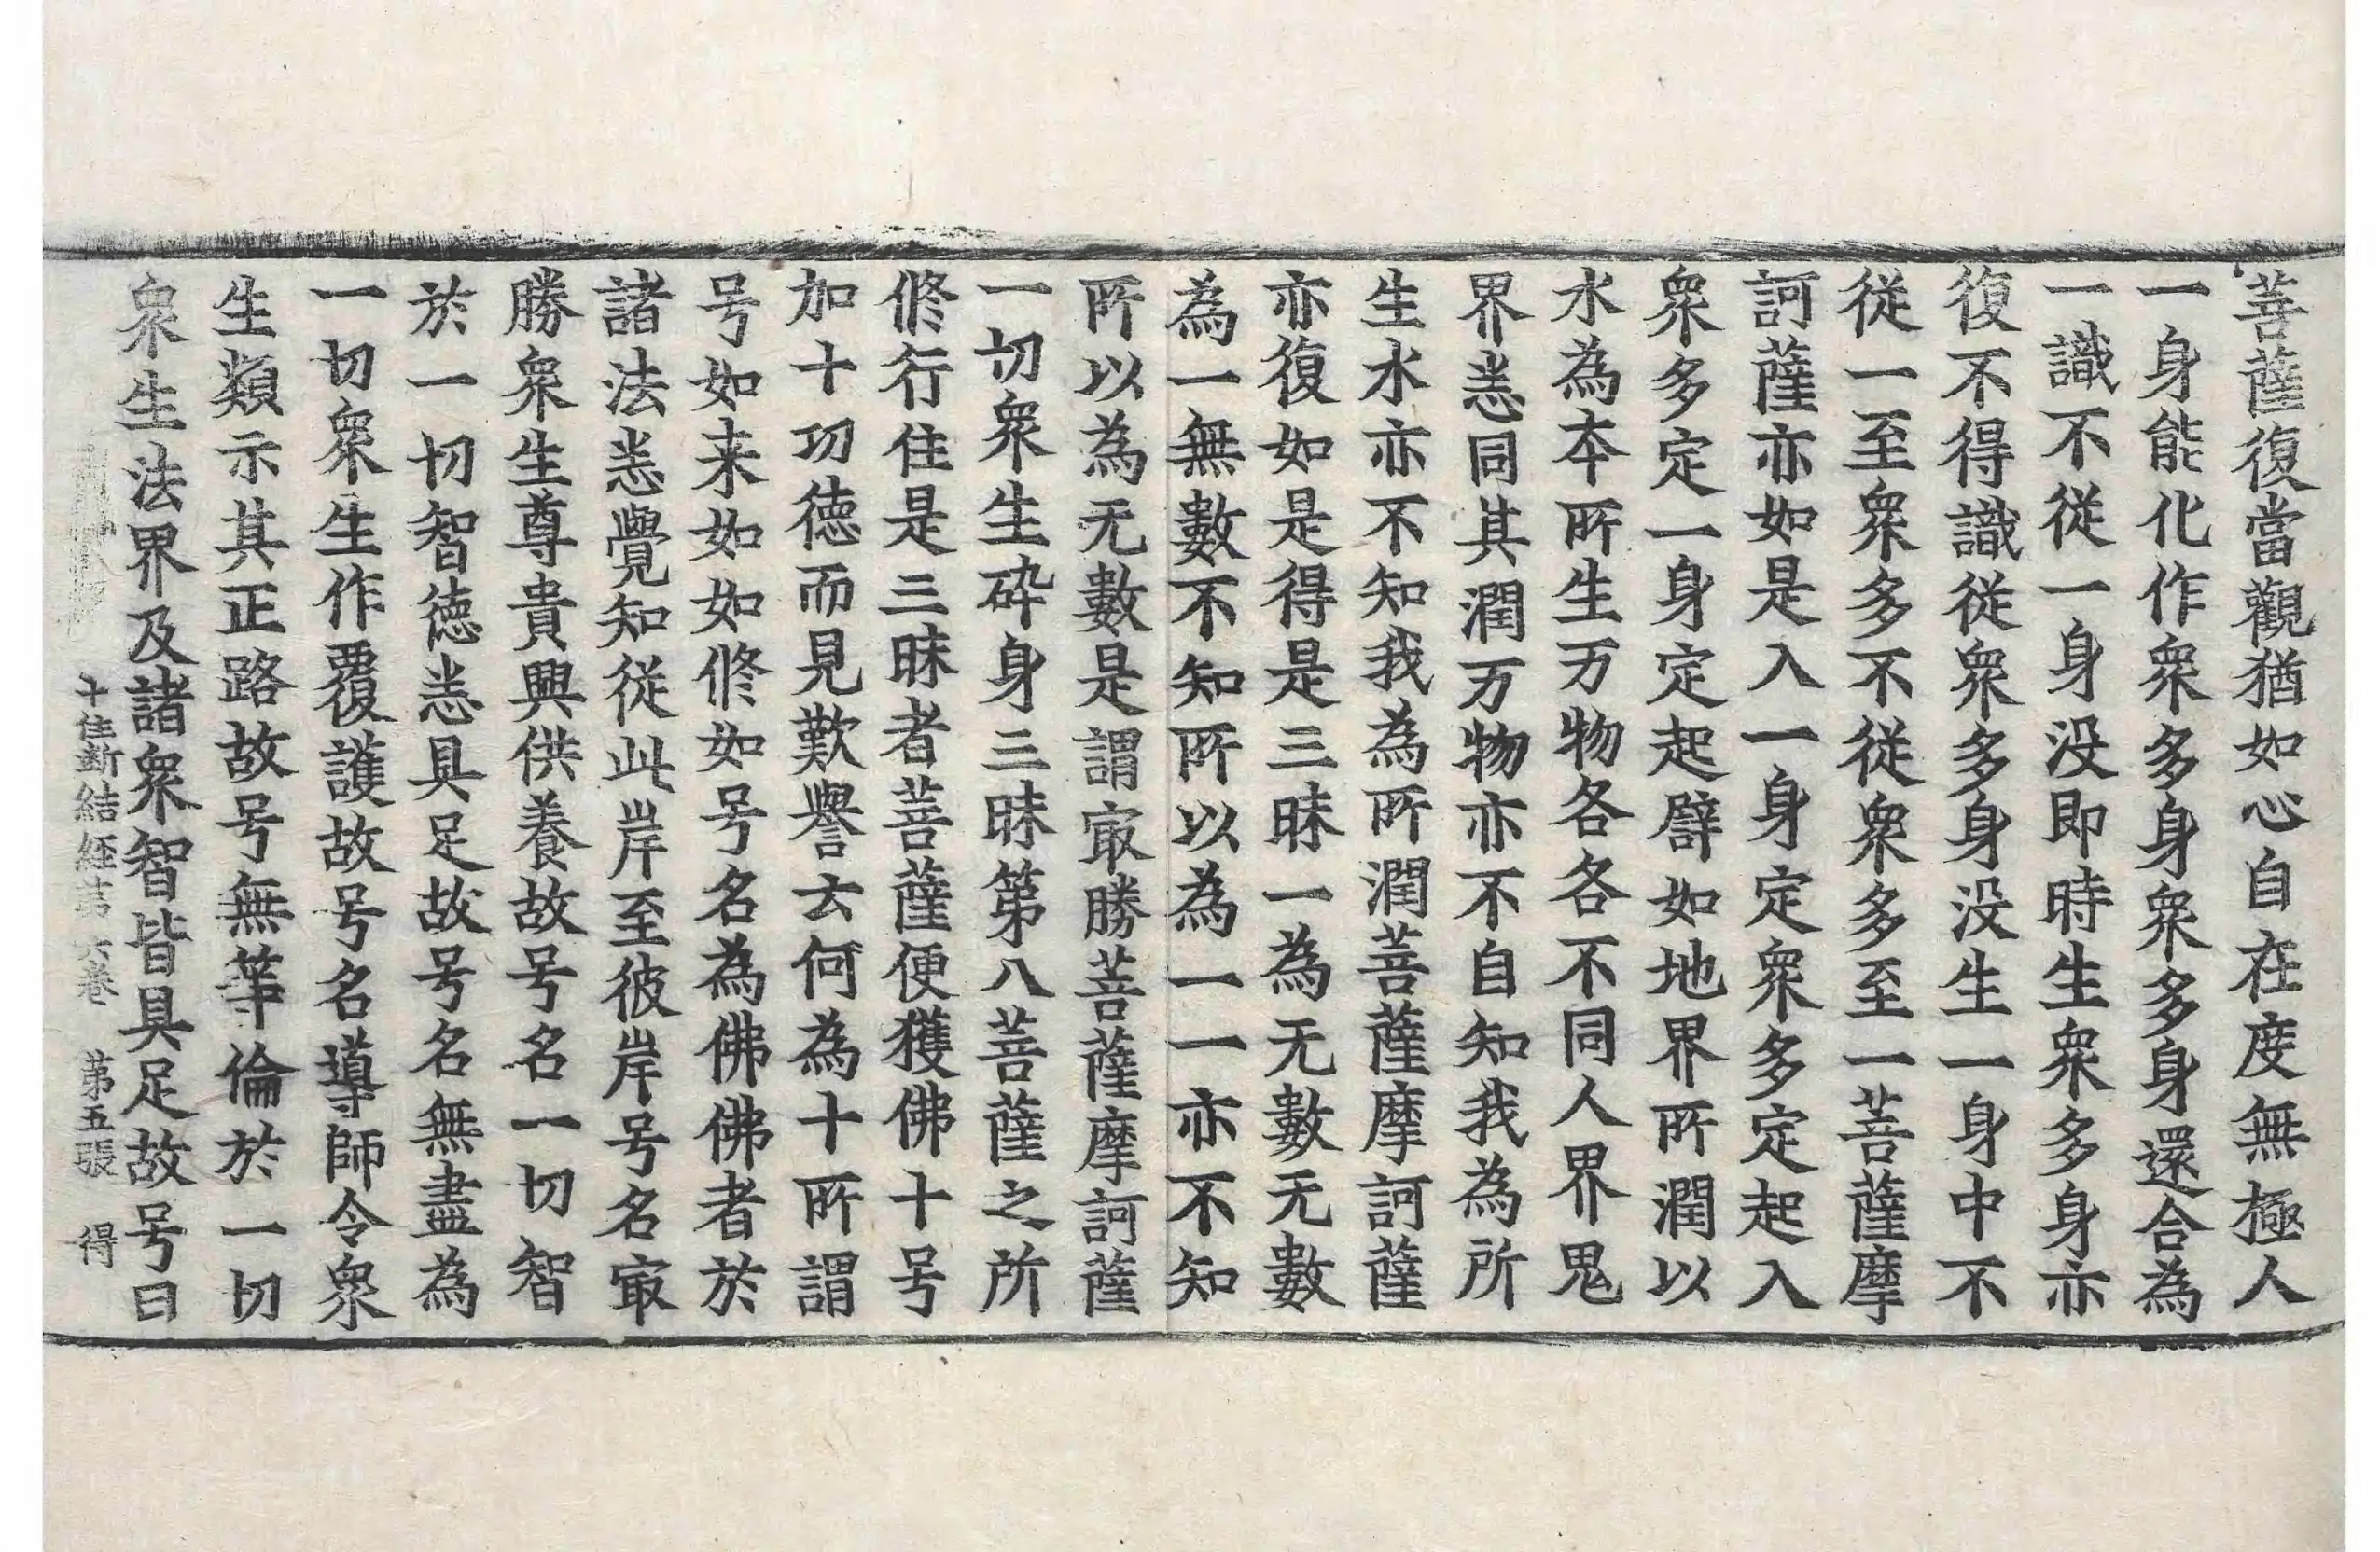 菩薩復當觀猶如心自在度無極人
一身能化作衆多身衆多身還合為
一識不從一身没即時生衆多身亦
復不得識從衆多身没生一身中不
從一至衆多不從衆多至一菩薩摩
訶薩亦如是入一身定衆多定起入
衆多定一身定起譬如地界所潤以
水為本所生万物各各不同人界鬼
界悉同其潤万物亦不自知我為所
生水亦不知我為所潤菩薩摩訶薩
亦復如是得是三昧一為无數无數
為一無數不知所以為一一亦不知
所以為无數是謂冣勝菩薩摩訶薩
一切衆生碎身三昧第八菩薩之所
修行住是三昧者菩薩便獲佛十号
加十功德而見歎譽云何為十所謂
号如来如如修如号名為佛佛者於
諸法悉覺知從此岸至彼岸号名冣
勝衆生尊貴興供養故号名一切智
於一切智德悉具足故号名無盡為
一切衆生作覆護故号名導師令衆
生類示其正路故号無等倫於一切
衆生法界及諸衆智皆具足故号曰
十住斷結經第六卷 第五張 得